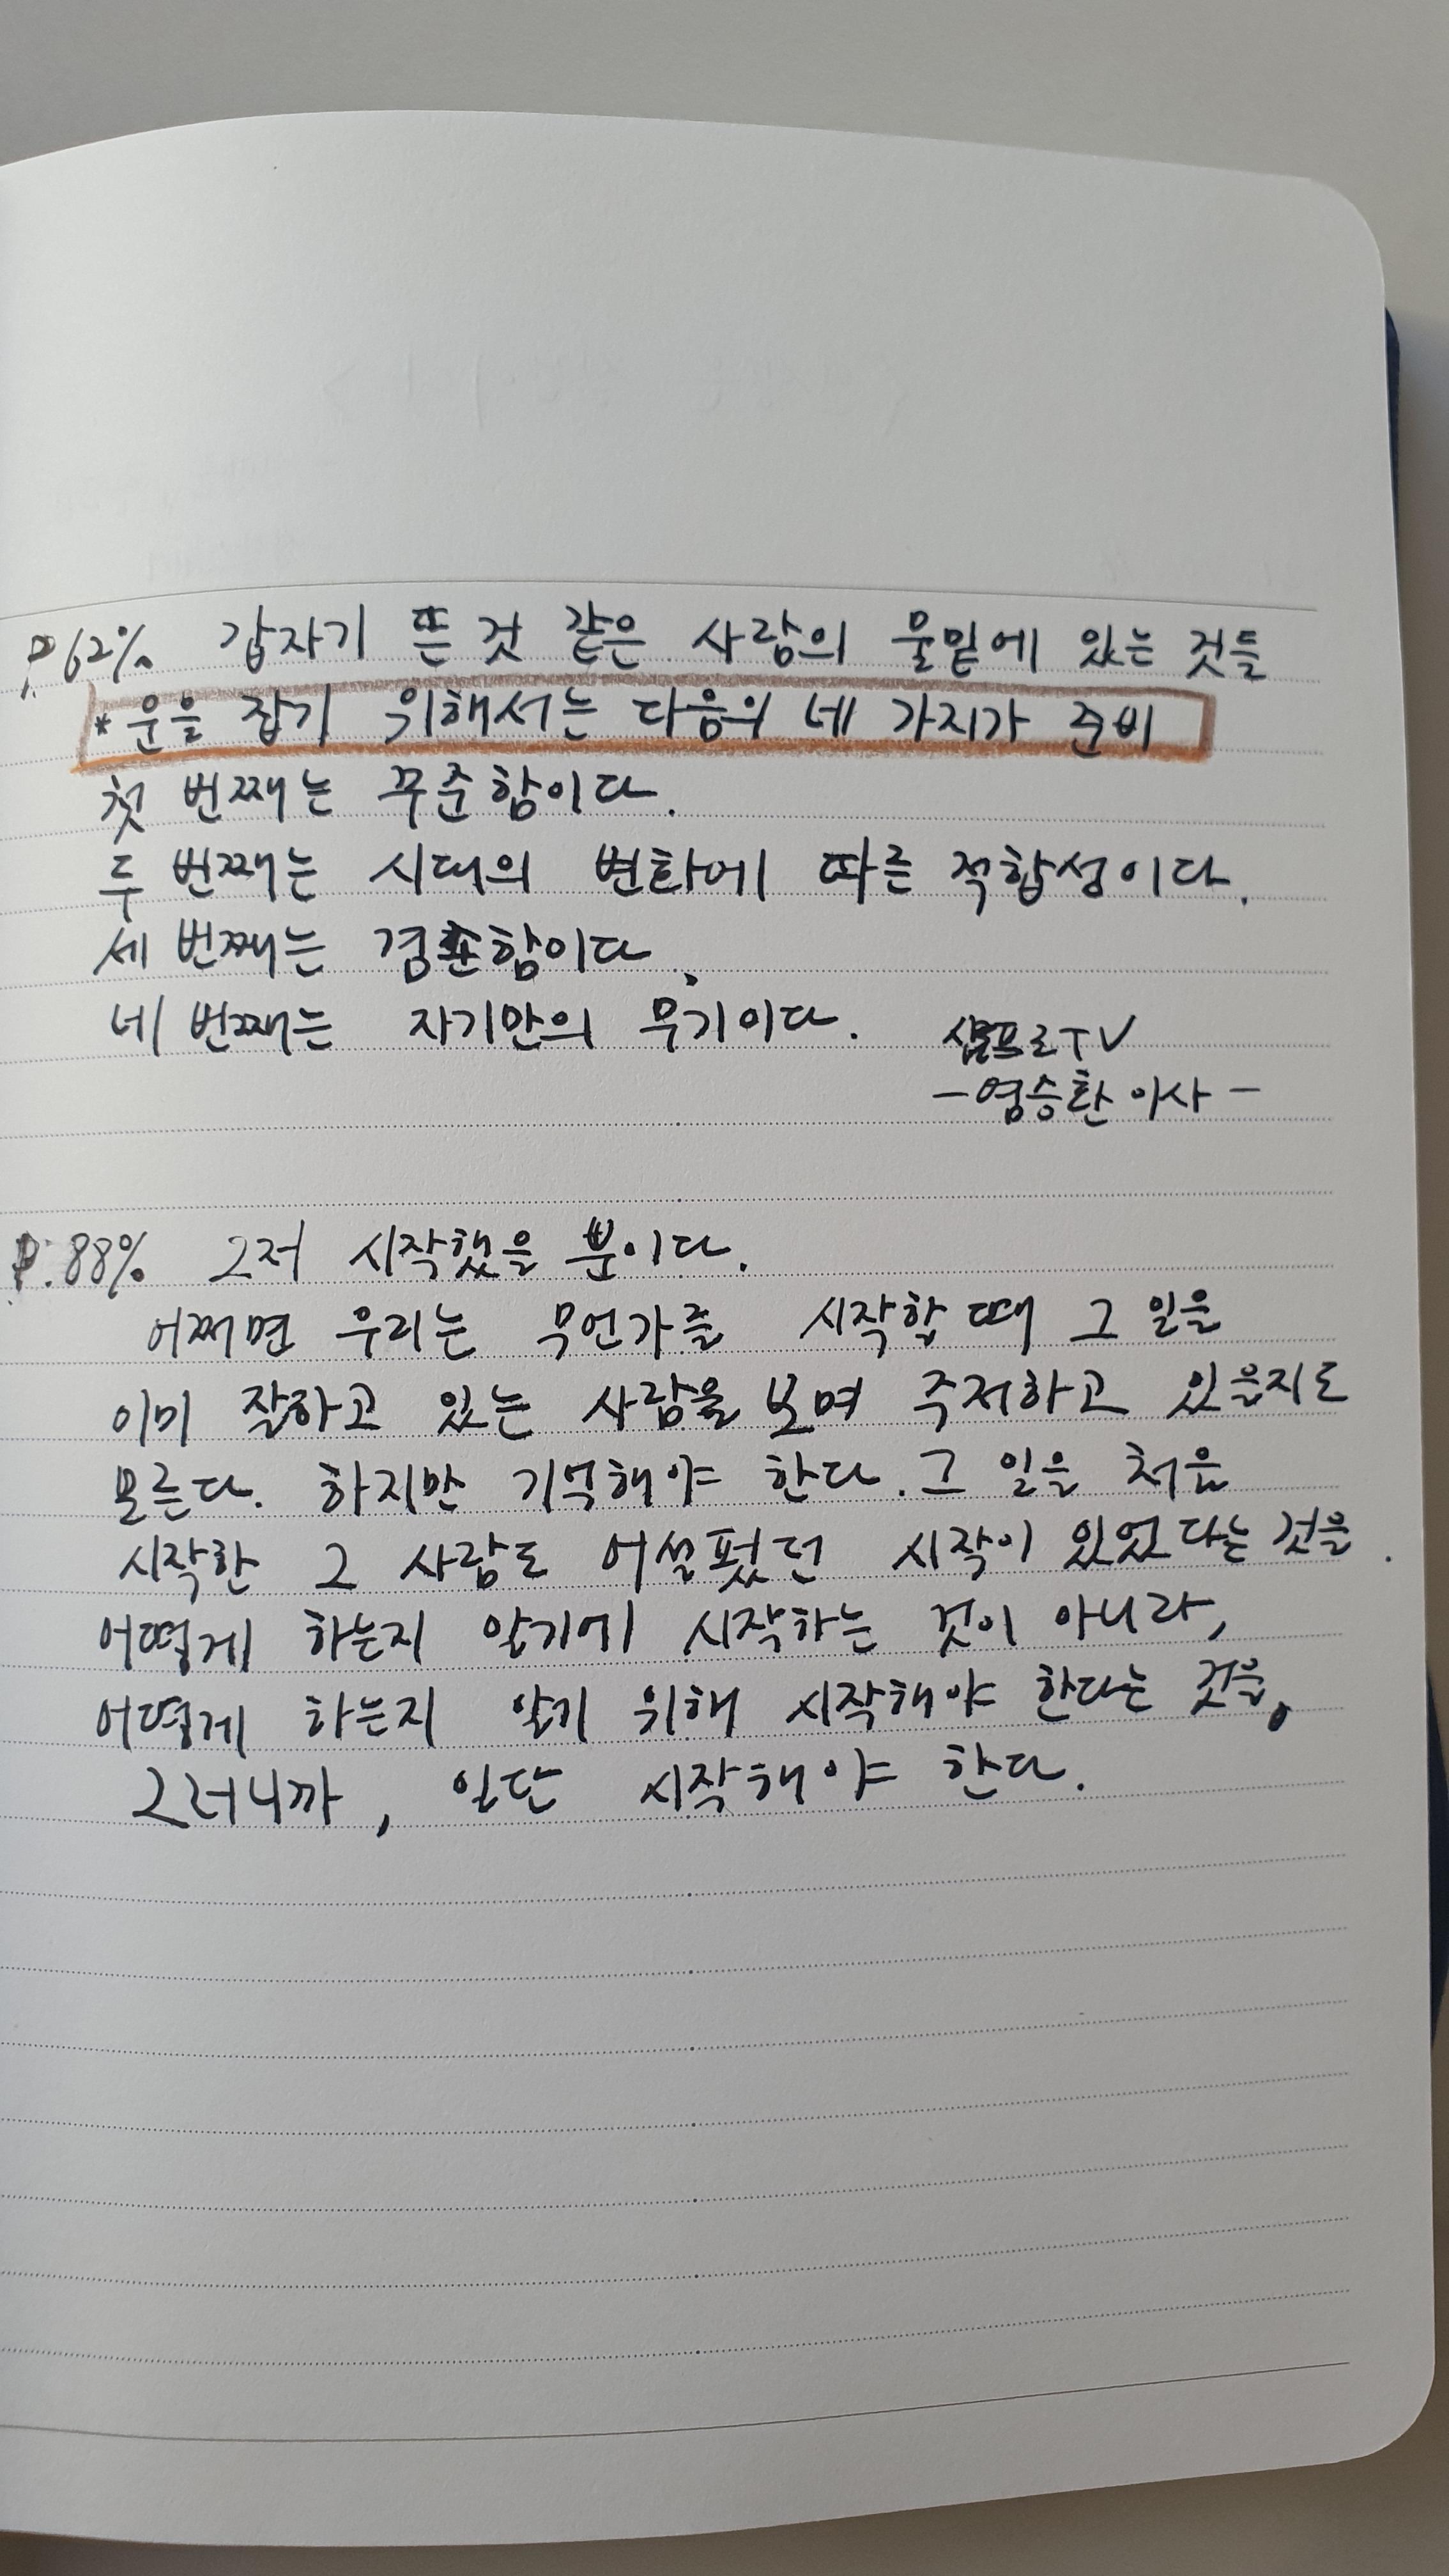 P.62% 갑자기 뜬 것 같은 사람의 물밑에 있는 것들
*운을 잡기 위해서는 다음의 네 가지가 준비
첫 번째는 꾸준함이다.
두 번째는 시대의 변화에 따른 적합성이다.
세 번째는 겸손함이다.
네 번째는 자기만의 무기이다.
삼프로TV
-염승환 이사-
P.88% 그저 시작했을 뿐이다.
어쩌면 우리는 무언가를 시작할 때 그 일을
이미 잘하고 있는 사람을 보며 주저하고 있을지도
모른다. 하지만 기억해야 한다. 그 일을 처음
시작한 그 사람도 어설펐던 시작이 있었다는 것을.
어떻게 하는지 알기에 시작하는 것이 아니라,
어떻게 하는지 알기 위해 시작해야 한다는 것을.
그러니까, 일단 시작해야 한다.